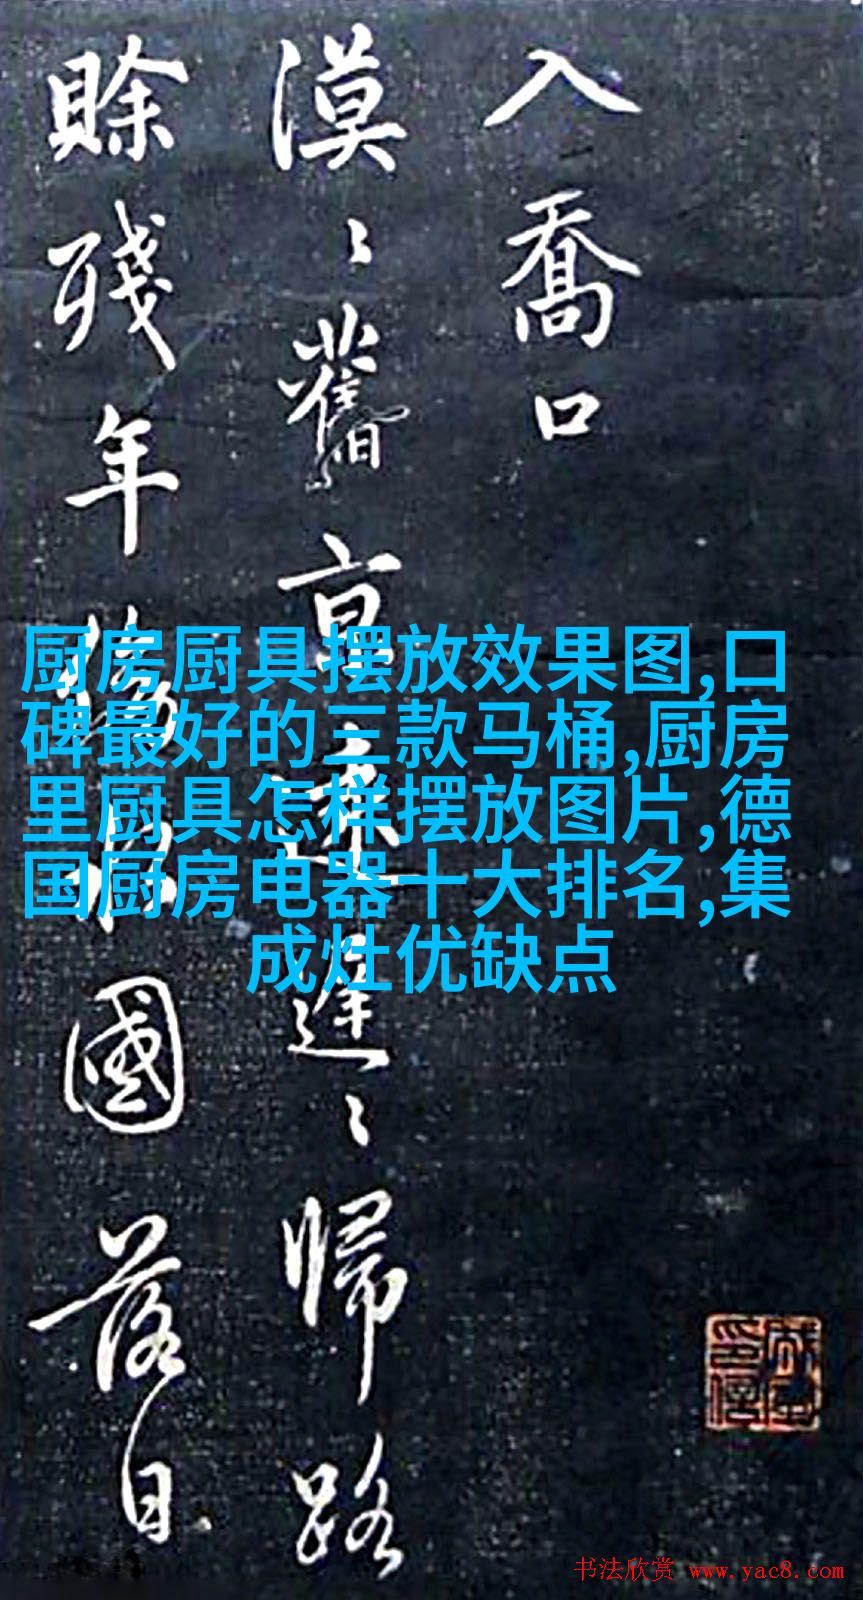 入喬口
漠〻舊亰遠遲〻歸路
賒殘年傍水國落日
厨房厨具摆放效果图,口
碑最好的三款马桶,厨房
里厨具怎样摆放图片,德
国厨房电器十大排名,集
成灶优缺点
书法欣赏 www.yac8.com